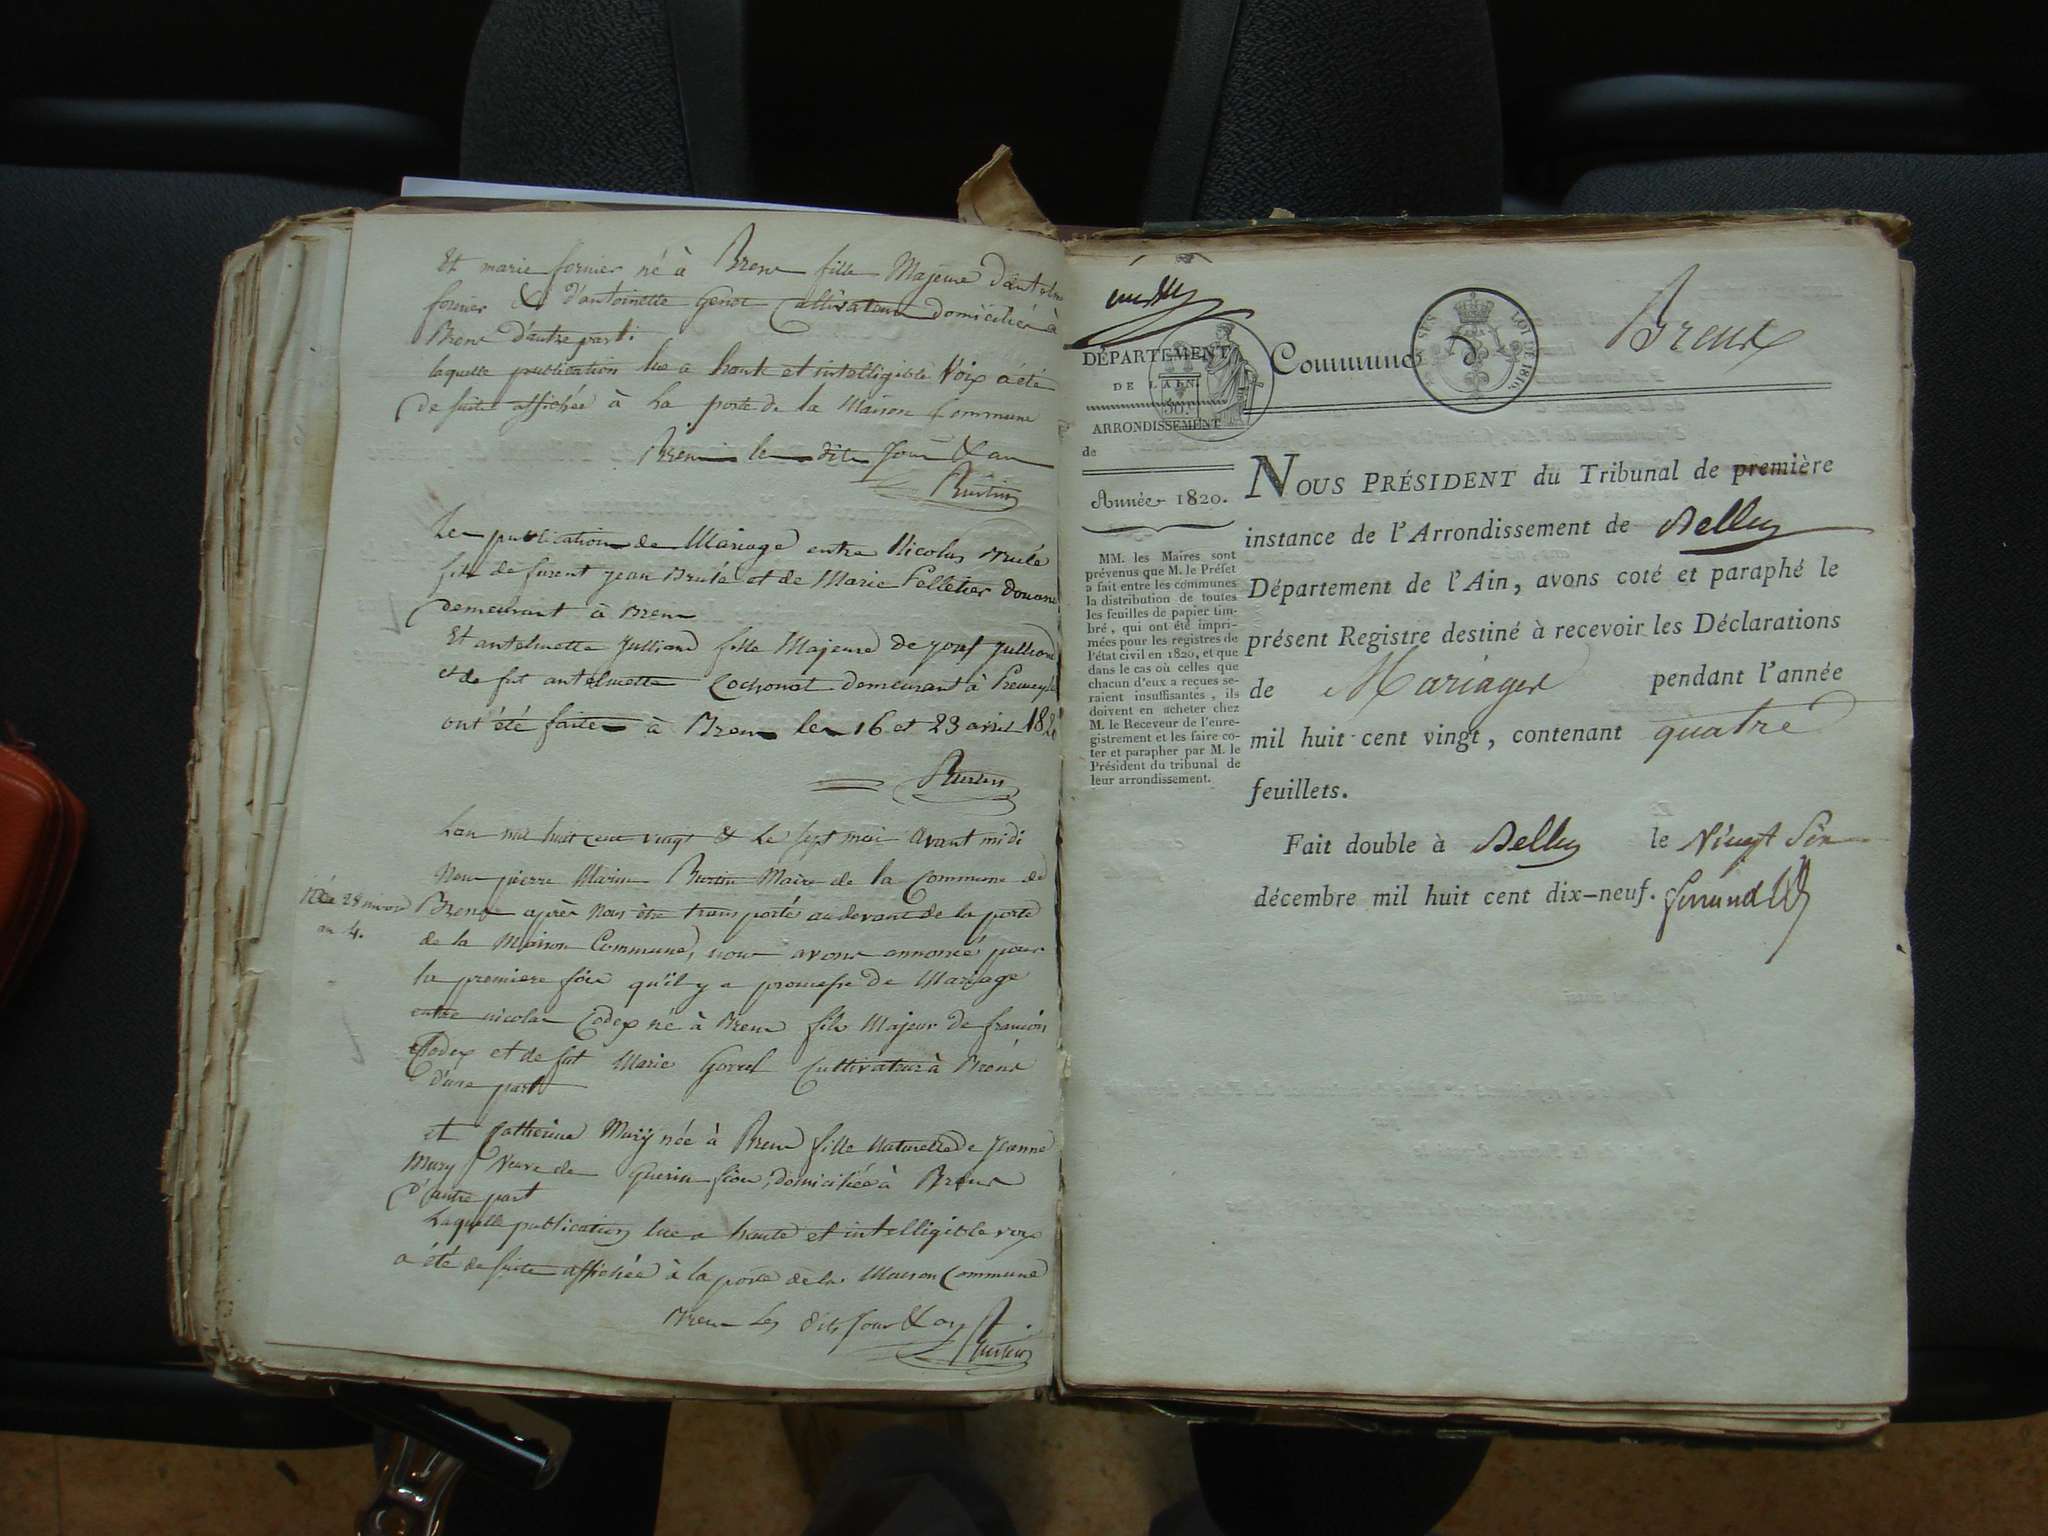 Et marie fornier né à Bren fille Majeure
fornier & d'antoinette Genet Cultivateur domiciliés à
Bren d'autre part.
laquelle publication lue a haute et intelligible Voix a été
de suite affichée à La porte de la Maison Commune
Bren le dits jour & an
Burtin
Les publications de Mariage entre Nicolas Brulé
fils de furent jean Brulé et de Marie Pelletier
demeurant à Bren
Et antelmette Julliand fille Majeure de
et de fut antelmette Cochonat demeurant à
ont été faites à Bren les 16 et 23 avril
Burtin
Lan mil huit cent vingt & Le sept mai avant midi
Nous pierre Marin Burtin Maire de la Commune de
28
an 4.
Brens après Nous être transportés au devant de la porte
de la Maison Commune, nous avons annoncé pour
la premiere fois qu'il y a promesse de Mariage
entre nicolas Codex né à Bren fils Majeur de
Codex et de fut Marie Gorrel Cultivateur à Brens
d'une part
et Catherine Mury née à Bren fille Naturelle de
Mury Veuve de domiciliée à Brens
d'autre part
Laquelle publication lue a haute et intelligible voix
a été de suite affichée à la porte de la Maison Commune
Bren Les dits jour & an
Burtin
DÉPARTEMENT
DE L'AIN.
50 c
ARRONDISSEMENT
de
Année 1820.
MM. les Maires sont
prévenus que M. le Préfet
a fait entre les communes
la distribution de toutes
les feuilles de papier tim-
bré, qui ont été impri-
mées pour les registres de
l'état civil en 1820, et que
dans le cas où celles que
chacun d'eux a reçues se-
raient insuffisantes, ils
doivent en acheter chez
M. le Receveur de l'enre-
gistrement et les faire co-
ter et parapher par M. le
Président du tribunal de
leur arrondissement.
Commune d
LOI DE 1816.
Brens
NOUS PRÉSIDENT du Tribunal de première
instance de l'Arrondissement de Belley
Département de l'Ain, avons coté et paraphé le
présent Registre destiné à recevoir les Déclarations
de Mariages pendant l'année
mil huit cent vingt, contenant quatre
feuillets.
Fait double à Belley le Vingt Six
décembre mil huit cent dix-neuf.